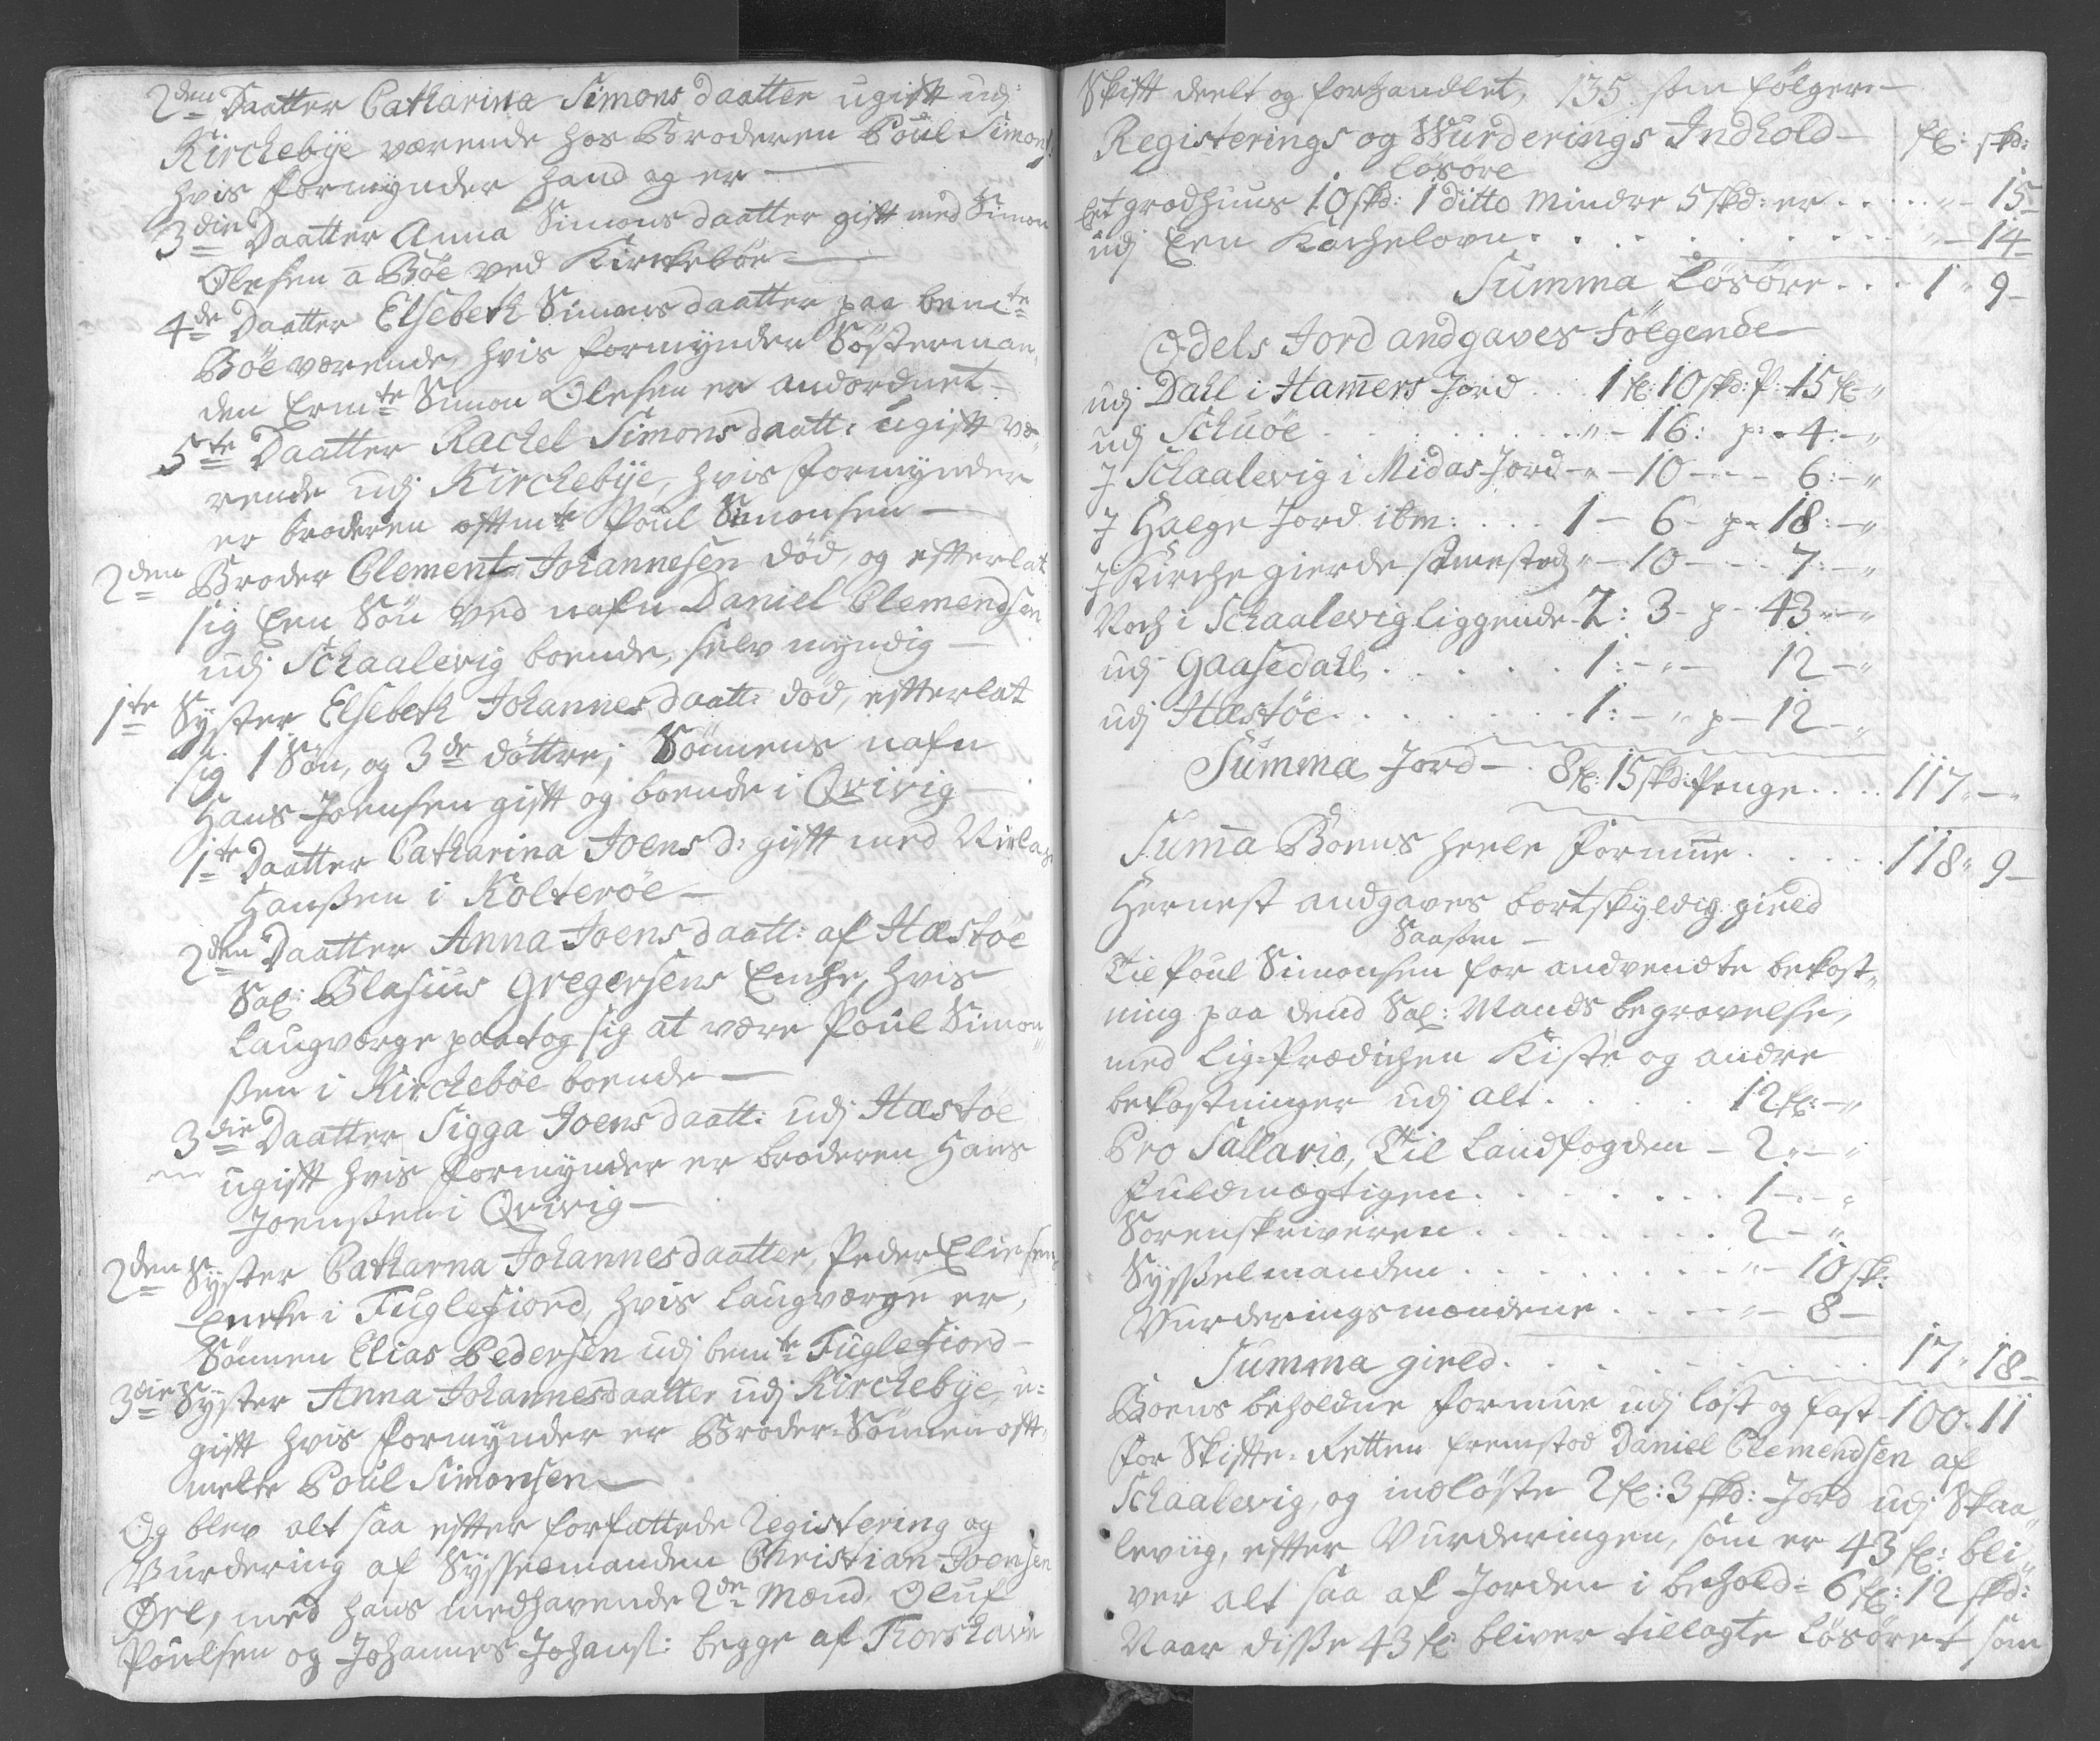 2den Daatter Catharina Simons daatter ugift udj
Kirchebÿe værende hos Broderen Poul Simons:
hvis formynder hand og er —
3die Daatter Anna Simons daatter gift med Simon
Olesen a Bøe ved Kirckebøe —
4de Daatter Elsebeth Simons daatter paa bemte
Bøe værende, hvis formynder Søsterman„
den Ermte Simon Olesen er andordnet —
5te Daatter Rachel Simons daatt: ugift væ„
rende udj Kirchebÿe, hvis formynder
er broderen oftmte Poul Simonsen —
2den Broder Clement Johannesen død, og efterlat
sig Een Søn ved nafn Daniel Clemendsen
udj Schaalevig boende, selv myndig —
1te Syster Elsebeth Johannes daatt: død, efterlat
sig 1 Søn, og 3de døttre; Sønnens nafn
Hans Joensen gift og boende i Qvivig —
1te Daatter Catharina Joens d: gift med Niclas
Hanssen i Kolterøe —
2den Daatter Anna Joens daatt: af Hæstøe
Sal: Blasius Gregersens Enche, hvis
Laugværge paatog sig at være Poul Simon„
ssen i Kirchebøe boende —
3die Daatter Sigga Joens daatt: udj Hæstøe
ugift hvis formynder er broderen Hans
Joenssen i Qvivig —
2den Syster Catharna Johannesdaatter, Peder Eliesens
Encke i Fuglefiord, hvis Laugværge er,
Sønnen Elias Pedersen udj bemte Fuglefiord —
3die Syster Anna Johannesdaatter udj Kirchebÿe, u=
gift hvis formynder er Broder-Sønnen oft„
melte Poul Simonsen
Og blev alt saa efter forfattede Registering og
Vurdering af Sysselmanden Christian Joensen
Øre, med hans medhavende 2de Mænd, Oluf
Poulsen og Johannes Johans: begge af Thorshavn
Skift deelt og forhandlet, 135 som følger —
Registerings og Wurderings Indhold — fl: skd:
Løsøre
Et grodhuus 10 skd: 1 ditto Mindre 5 skd: er . . . „ — 15 —
udj Een Kachelovn . . . „ — 14 —
Summa Løsøre . . . 1 „ 9 —
Odels Jord andgaves Følgende
udj Dahl i Hamers Jord . . 1 fl: 10 skd: P: 15 fl — „
udj Schuøe . . . „ — 16: p: - 4: — „
J Schaalevig i Midas Jord — „ — 10 — — 6: — „
J Halge Jord ibm: . . . 1 — 6 — p - 18: — „
J Kirche gierde samestedz „ — 10 — — 7: — „
Noch i Schaalevig liggende - 2: 3 - p - 43 — „
udj Gaasedahl . . . 1: — „ — 12 — „
udj Hæstøe . . . 1: — „ p — 12 — „
Summa Jord — . 8 fl: 15 skd: Penge . . . 117 „ — „
Suma Boens heele formue . . . 118 „ 9 —
Hernest andgaves bortskyldig gield
Saasom —
Til Poul Simonsen for andvendte bekost„
ning paa dend Sal: Mands begravelse,
med Lig=Prædichen Kiste og andre
bekostninger udj alt . . . 12 fl: — „
Pro Sallario, Til Landfogden — 2 „ — „
Fuldmægtigen . . . 1 — „
Sorenskriveren . . . 2 — „
Sysselmanden . . . „ — 10 sk:
Vurderingsmændene . . . „ — 8 —
Summa gield . . . 17 „ 18 —
Boens beholdne formue udj løst og fast — 100 „ 11
for Skifte-Retten fremstod Daniel Clemendsen af
Schaalevig, og indløste 2 fl: 3 skd: Jord udj Skaa„
leviig, efter Vurderingen, som er 43 fl: bli„
ver alt saa af Jorden i behold: 6 fl: 12 skd:
Naar disse 43 fl bliver tillagte Løsøret som